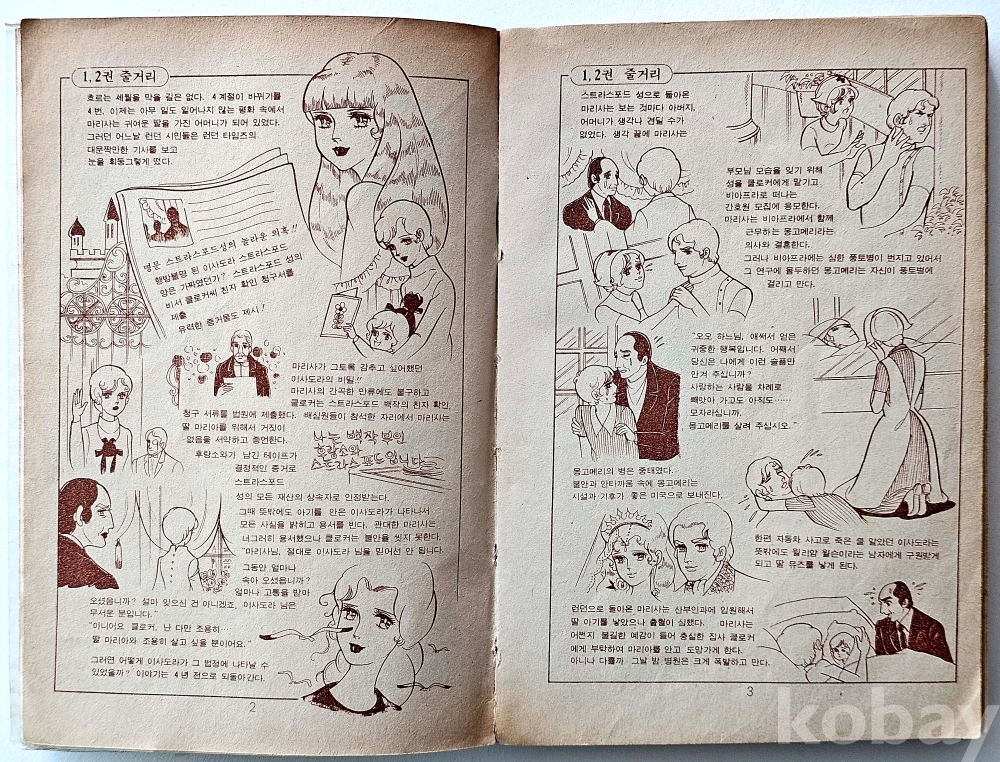 1, 2권 줄거리
흐르는 세월을 막을 길은 없다. 4계절이 바뀌기를
4번, 이제는 아무 일도 일어나지 않는 평화 속에서
마리사는 귀여운 딸을 가진 어머니가 되어 있었다.
그러던 어느날 런던 시민들은 런던 타임즈의
대문짝만한 기사를 보고
눈을 휘둥그렇게 떴다.
명문 스트라스포드성의 놀라운 의혹!!
행방불명 된 이사도라 스트라스포드
양은 가짜였던가? 스트라스포드 성의
비서 클로커씨 친자 확인 청구서를
제출
유력한 증거물도 제시!
마리사가 그토록 감추고 싶어했던
이사도라의 비밀!!
마리사의 간곡한 만류에도 불구하고
클로커는 스트라스포드 백작의 친자 확인,
청구 서류를 법원에 제출했다. 배심원들이 참석한 자리에서 마리사는
딸 마리아를 위해서 거짓이
없음을 서약하고 증언한다.
나는 백작 부인
후랑소와
스트라스포드입니다
후랑소와가 남긴 테이프가
결정적인 증거로
스트라스포드
성의 모든 재산의 상속자로 인정받는다.
그때 뜻밖에도 아기를 안은 이사도라가 나타나서
모든 사실을 밝히고 용서를 빈다. 관대한 마리사는
너그러히 용서했으나 클로커는 불안을 씻지 못한다.
"마리사님, 절대로 이사도라 님을 믿어선 안 됩니다.
그동안 얼마나
속아 오셨읍니까?
얼마나 고통을 받아
오셨읍니까? 설마 잊으신 건 아니겠죠, 이사도라 님은
무서운 분입니다."
"아니어요 클로커, 난 다만 조용히…
딸 마리아와 조용히 살고 싶을 뿐이어요."
그러면 어떻게 이사도라가 그 법정에 나타날 수
있었을까? 이야기는 4년 전으로 되돌아간다.
2
1, 2권 줄거리
스트라스포드 성으로 돌아온
마리사는 보는 것마다 아버지,
어머니가 생각나 견딜 수가
없었다. 생각 끝에 마리사는
부모님 모습을 잊기 위해
성을 클로커에게 맡기고
비아프라로 떠나는
간호원 모집에 응모한다.
마리사는 비아프라에서 함께
근무하는 몽고메리라는
의사와 결혼한다.
그러나 비아프라에는 심한 풍토병이 번지고 있어서
그 연구에 몰두하던 몽고메리는 자신이 풍토병에
걸리고 만다.
"오오 하느님, 애써서 얻은
귀중한 행복입니다. 어째서
당신은 나에게 이런 슬픔만
안겨 주십니까?
사랑하는 사람을 차례로
빼앗아 가고도 아직도……
모자라십니까.
몽고메리를 살려 주십시오."
몽고메리의 병은 중태였다.
불안과 안타까움 속에 몽고메리는
시설과 기후가 좋은 미국으로 보내진다.
한편 자동차 사고로 죽은 줄 알았던 이사도라는
뜻밖에도 윌리암 윌슨이라는 남자에게 구원받게
되고 딸 뮤즈를 낳게 된다.
런던으로 돌아온 마리사는 산부인과에 입원해서
딸 아기를 낳았으나 출혈이 심했다. 마리사는
어쩐지 불길한 예감이 들어 충실한 집사 클로커
에게 부탁하여 마리아를 안고 도망가게 한다.
아니나 다를까 그날 밤 병원은 크게 폭발하고 만다.
3
kobay